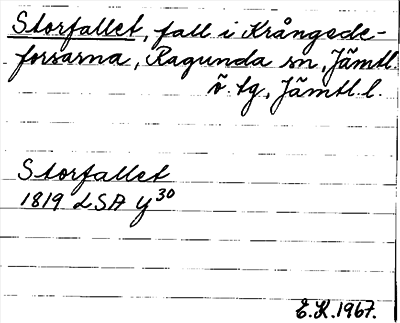 Storfallet, fall i Krångede-
forsarna, Ragunda sn, Jämtl.
ö. tg, Jämtl. l.
Storfallet
1819 LSA y³⁰
E.K. 1967.